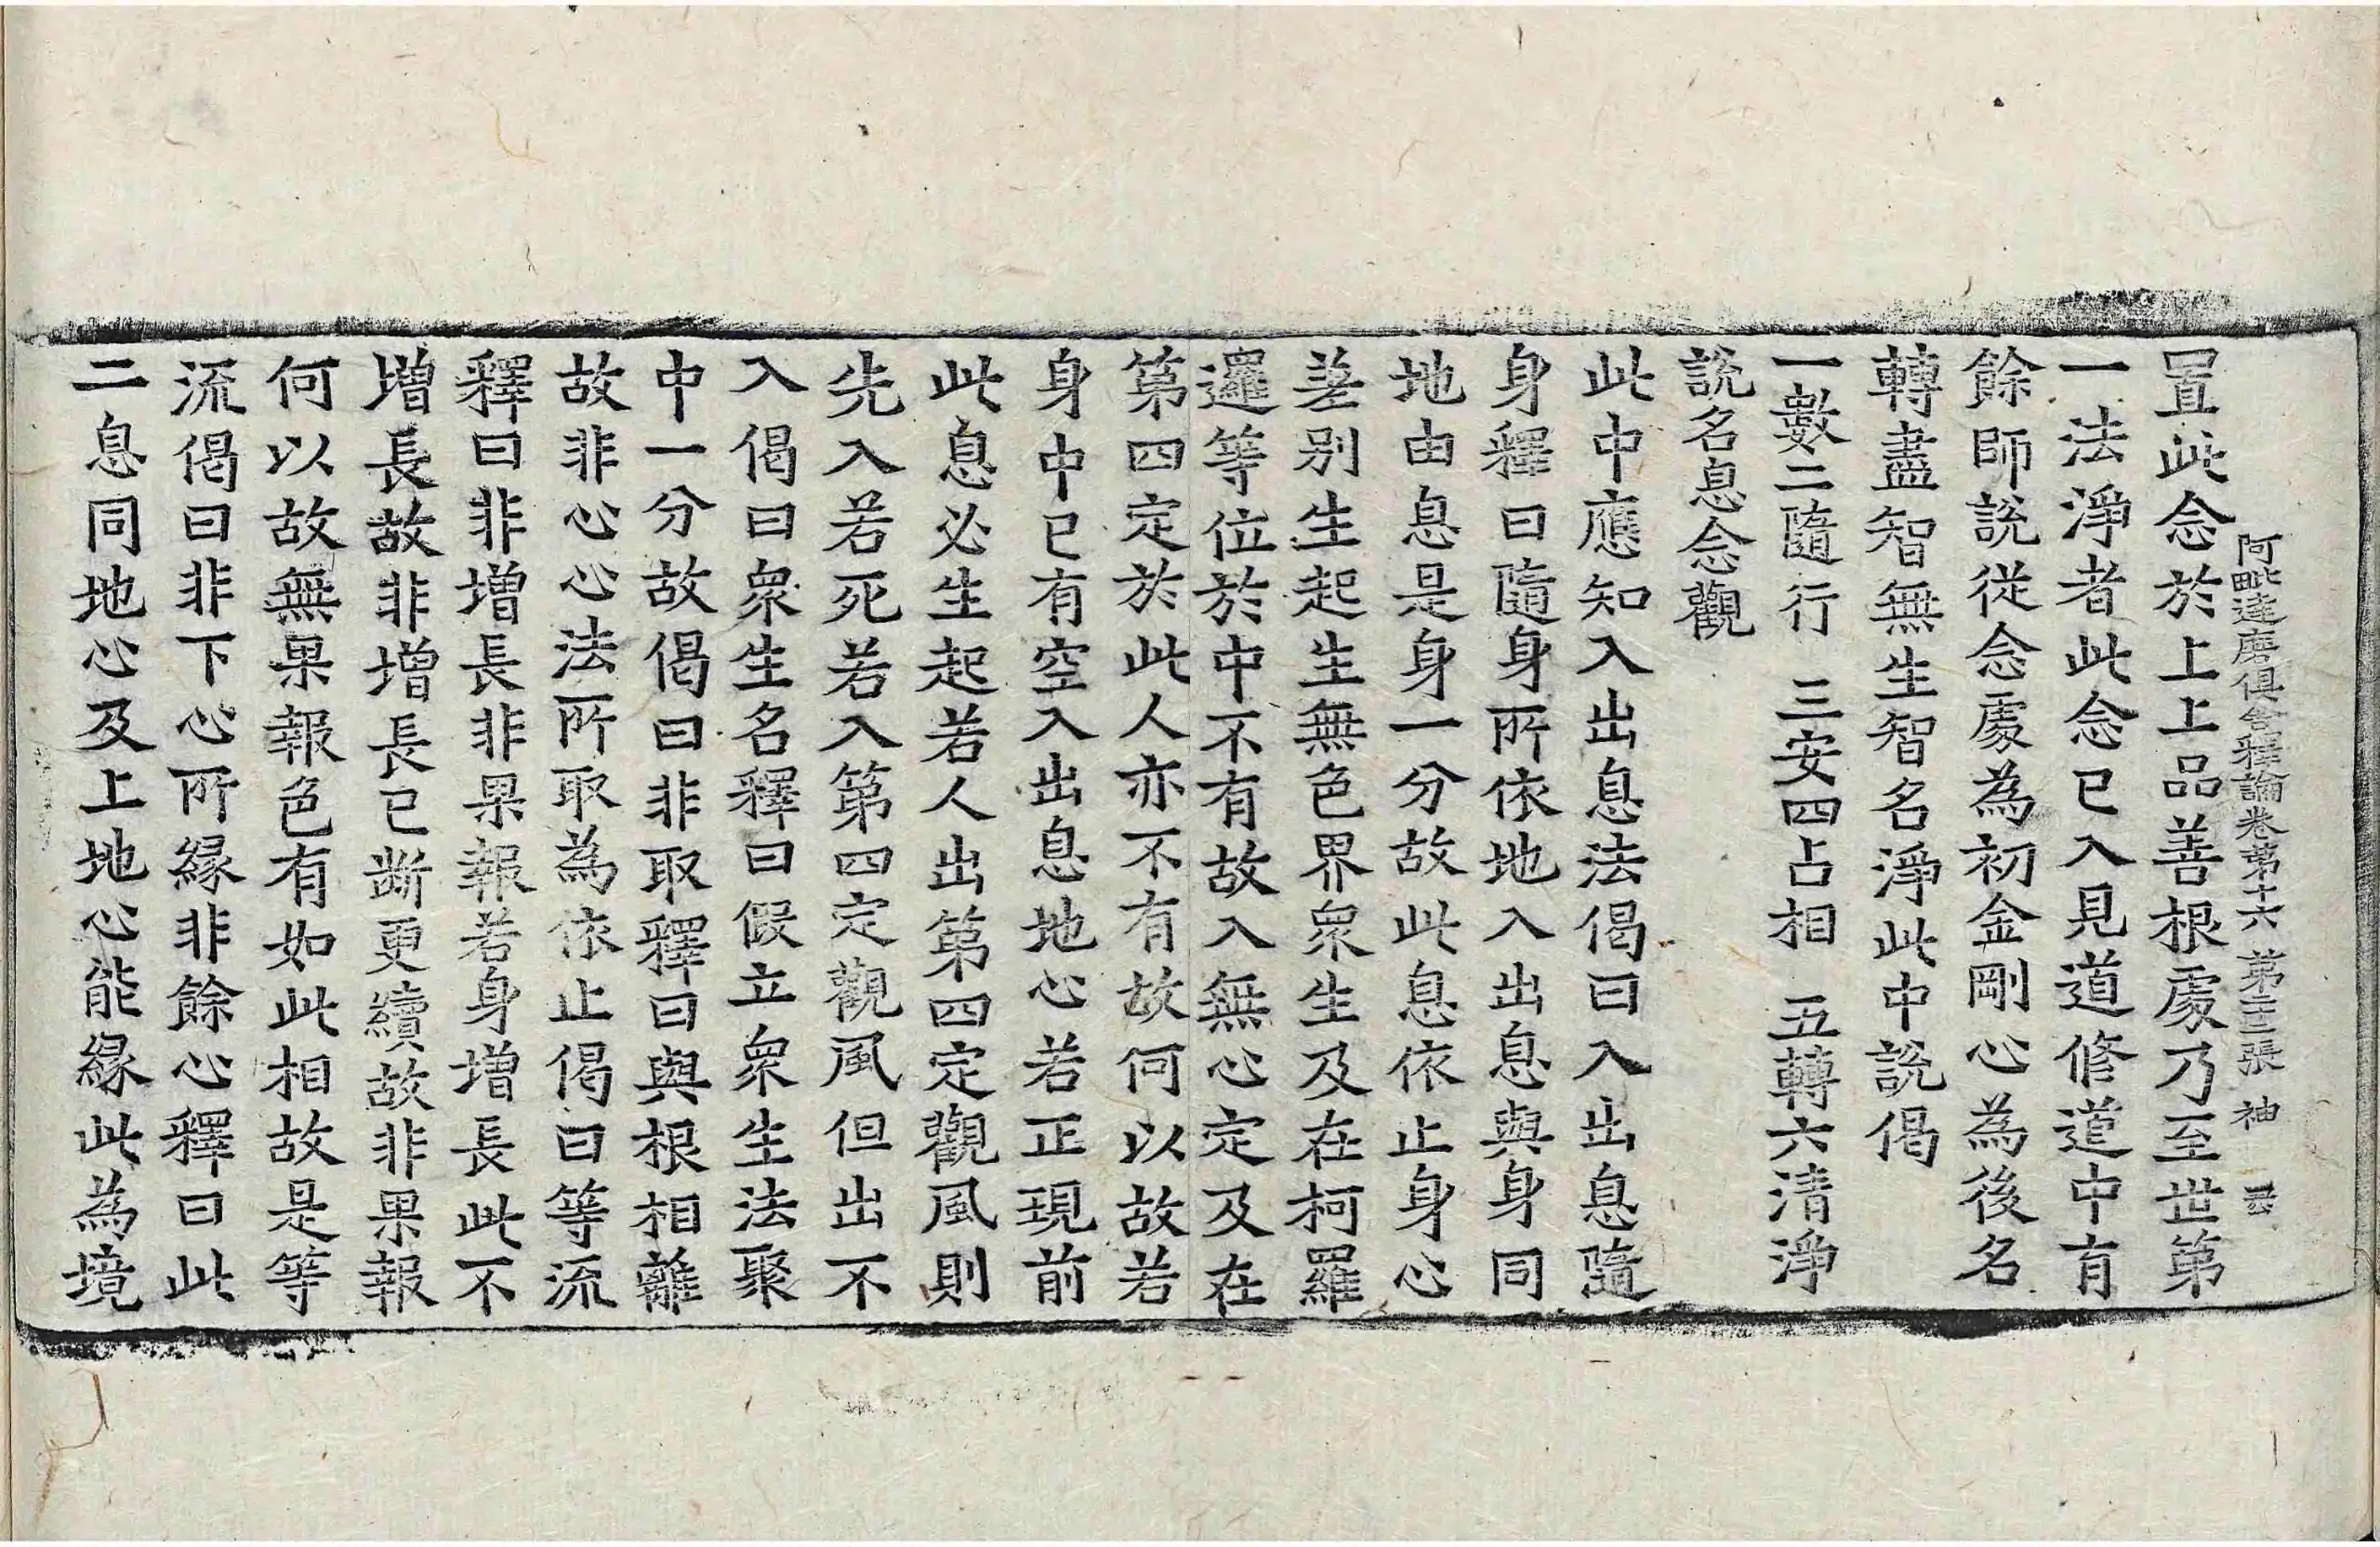 阿毗達磨俱舍釋論卷第十六 第二十二張 神
置此念於上上品善根處乃至世第
一法淨者此念已入見道修道中有
餘師說從念處為初金剛心為後名
轉盡智無生智名淨此中說偈
一數二隨行 三安四占相 五轉六清淨
說名息念觀
此中應知入出息法偈曰入出息隨
身釋曰隨身所依地入出息與身同
地由息是身一分故此息依止身心
差別生起生無色界衆生及在柯羅
邏等位於中不有故入無心定及在
第四定於此人亦不有故何以故若
身中已有空入出息地心若正現前
此息必生起若人出第四定觀風則
先入若死若入第四定觀風但出不
入偈曰衆生名釋曰假立衆生法聚
中一分故偈曰非取釋曰與根相離
故非心心法所取為依止偈曰等流
釋曰非增長非果報若身增長此不
增長故非增長已斷更續故非果報
何以故無果報色有如此相故是等
流偈曰非下心所緣非餘心釋曰此
二息同地心及上地心能緣此為境